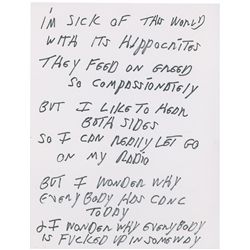 I'M SICK OF THIS WORLD
WITH ITS HIPPOCRITES
THEY FEED ON GREED
SO COMPASSIONATELY
BUT I LIKE TO HEAR
BOTH SIDES
SO I CAN REALLY LET GO
ON MY RADIO
BUT I WONDER WHY
EVERYBODY HAS GONE
TODAY
& I WONDER WHY EVERYBODY
IS FUCKED UP IN SOMEWAY